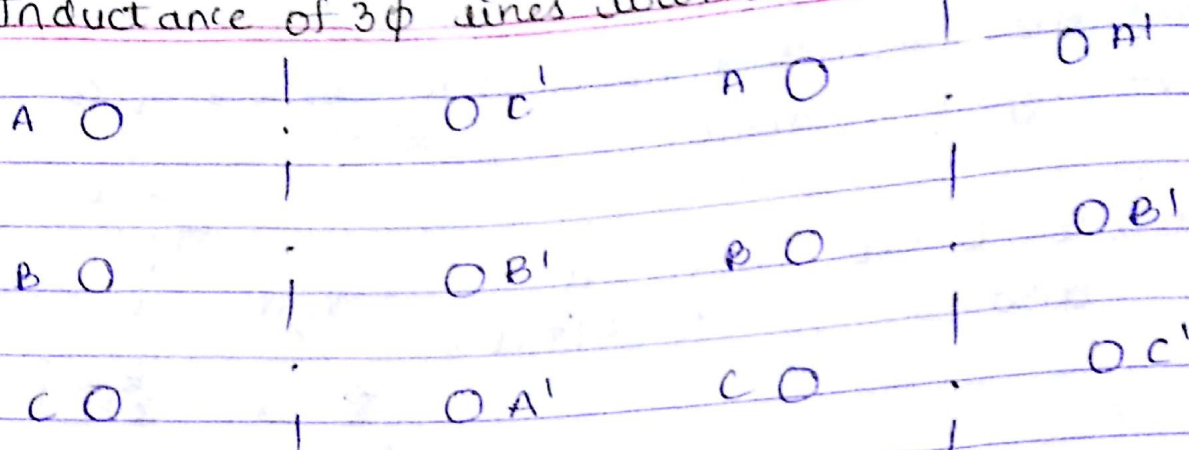 Inductance of 3φ lines
A C' A A'
B B' B B'
C A' C C'